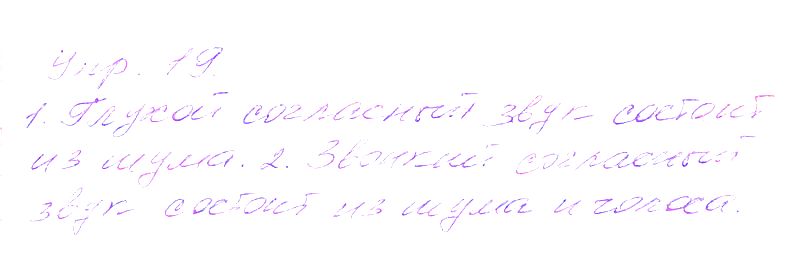 Упр. 19.
1. Глухой согласный звук состоит
из шума. 2. Звонкий согласный
звук состоит из шума и голоса.